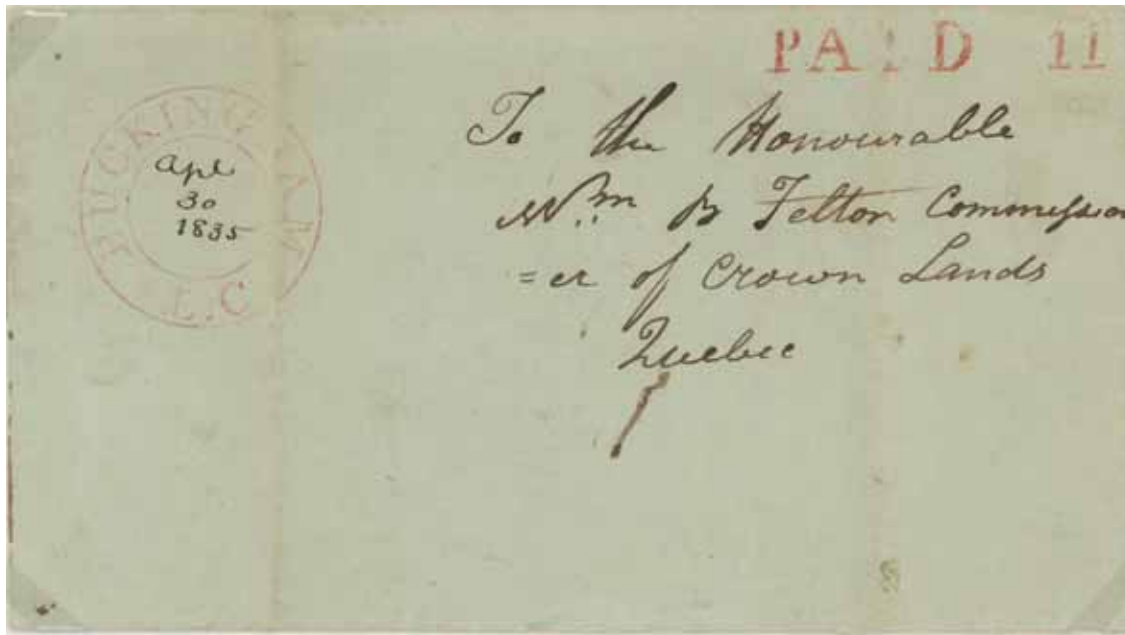 PAID 11
BUCKINGHAM
L.C
Apl
30
1835
To the Honourable
Wm B Felton Commission
=er of Crown Lands
Quebec